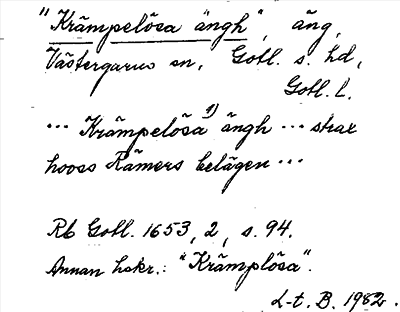 "Krämpelösa ängh", äng,
Västergarns sn, Gotl. s. hd,
Gotl. l.
... Krämpelösa 1) ängh ... strax
hooss Rämers belägen ...
Rb Gotl. 1653, 2, s. 94.
Annan hskr.: "Krämplösa".
L-t. B. 1982.